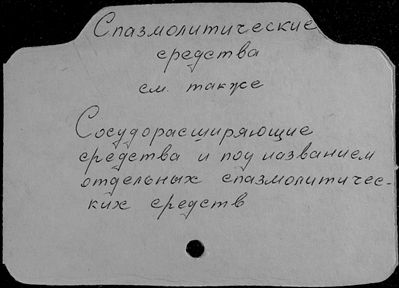 Спазмолитические
средства
см. также
Сосудорасширяющие
средства и под названием
отдельных спазмолитичес-
ких средств